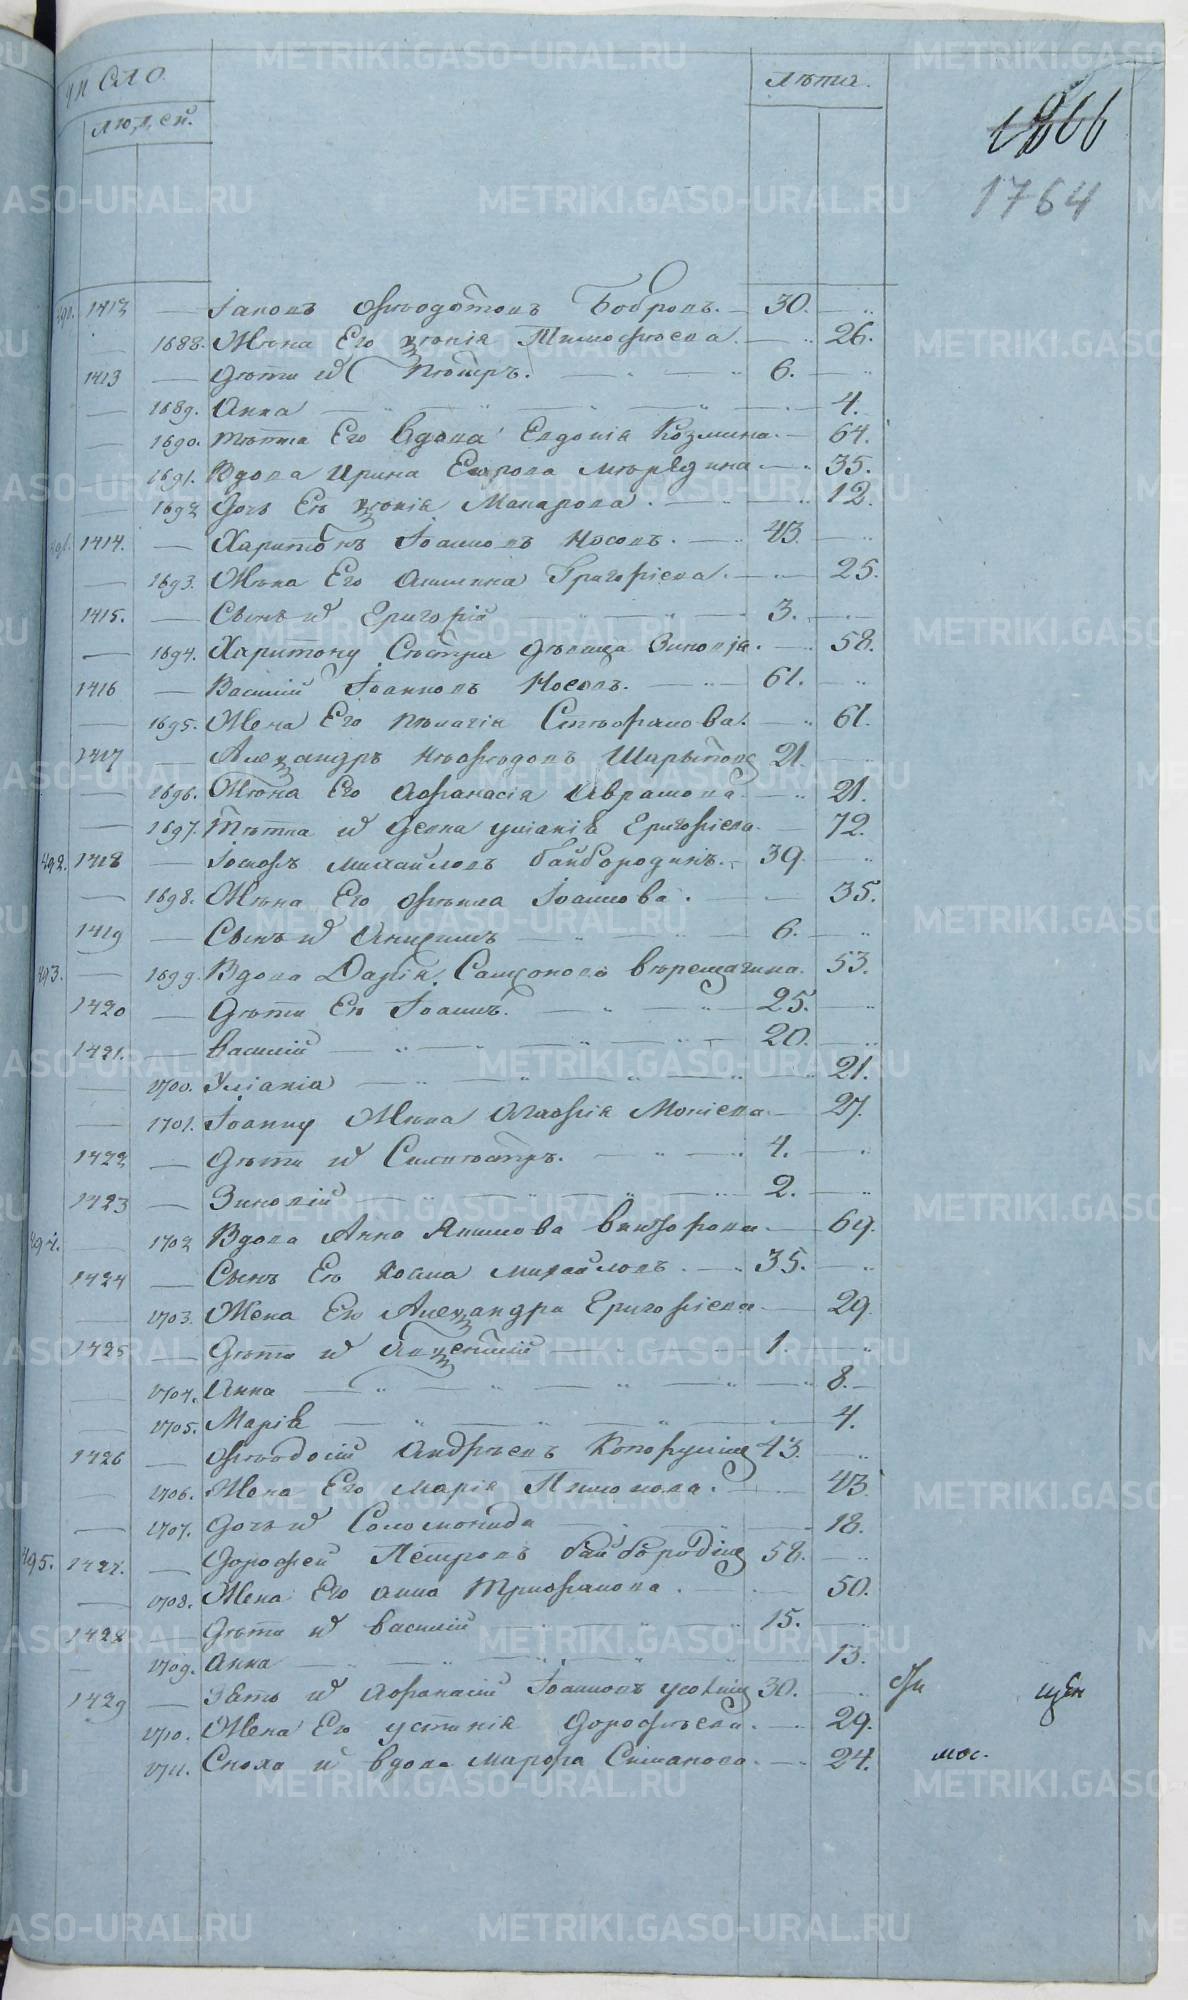 число
людей.
лѣта.
1866
1764
491. 1413 — Іаковъ Ѳеодотовъ Бобровъ. — 30.
1688. Жена Его Ксенія Тимоѳеева. — 26.
1413 — дѣти их Петръ. — 6.
1689. Анна — 4.
1690. тетка Его вдова Евдокія Козмина. — 64.
1691. Вдова Ирина Егорова — 35.
1692 Дочь Ея Ксенія Макарова. — 12.
491. 1414. — Харитонъ Іоанновъ Носовъ. — 43.
1693. Жена Его Акилина Григоріева. — 25.
1415. — Сынъ их Григорій — 3.
1694. Харитону Сестра дѣвица Зиновія. — 58.
1416 — Василій Іоанновъ Носовъ. — 61.
1695. Жена Его Пелагія Стеѳанова. — 61.
1417 — Александръ Меѳодовъ Шарыповъ 21.
1696. Жена Его Аѳанасія Аврамова. — 21.
1697. Тетка их Девка Уліанія Григоріева. — 72.
492. 1418 — Іосифъ Михайловъ Байбородинъ. — 39.
1698. Жена Его Ѳекла Іоаннова. — 35.
1419 — Сынъ их Анисимъ — 6.
493. — 1699. Вдова Дарія Самсонова Верещагина. 53.
1420 — Дѣти Ея Іоаннъ. — 25.
1421. — Василій — 20.
1700. Уліанія — 21.
1701. Іоанну Жена Агафія Моисіева — 27.
1422 — Дѣти их Силивестръ. — 4.
1423 — Зиновій — 2.
494. — 1702 Вдова Анна Якимова — 69.
1424 — Сынъ Ея Косма Михайловъ. — 35.
1703. Жена Его Александра Григоріева — 29.
1425 — Дѣти их Авксентій — 1
1704. Анна — 8.
1705. Марія — 4.
1426 — Ѳеодосій Андреевъ 43.
1706. Жена Его Марія Пимонова. — 43
1707. Дочь их Соломонида — 18.
495. 1427. — Дорофей Петровъ Байбородинъ 58.
1708. Жена Его Анна Триѳанова. — 50.
1428 — Дѣти их Василій — 15.
1709. Анна — 13.
1429 — Зять их Аѳанасій Іоанновъ 30.
1710. Жена Его Устинія Дороѳеева. — 29.
1711. Сноха их вдова Марѳа Степанова. — 24.
METRIKI.GASO-URAL.RU